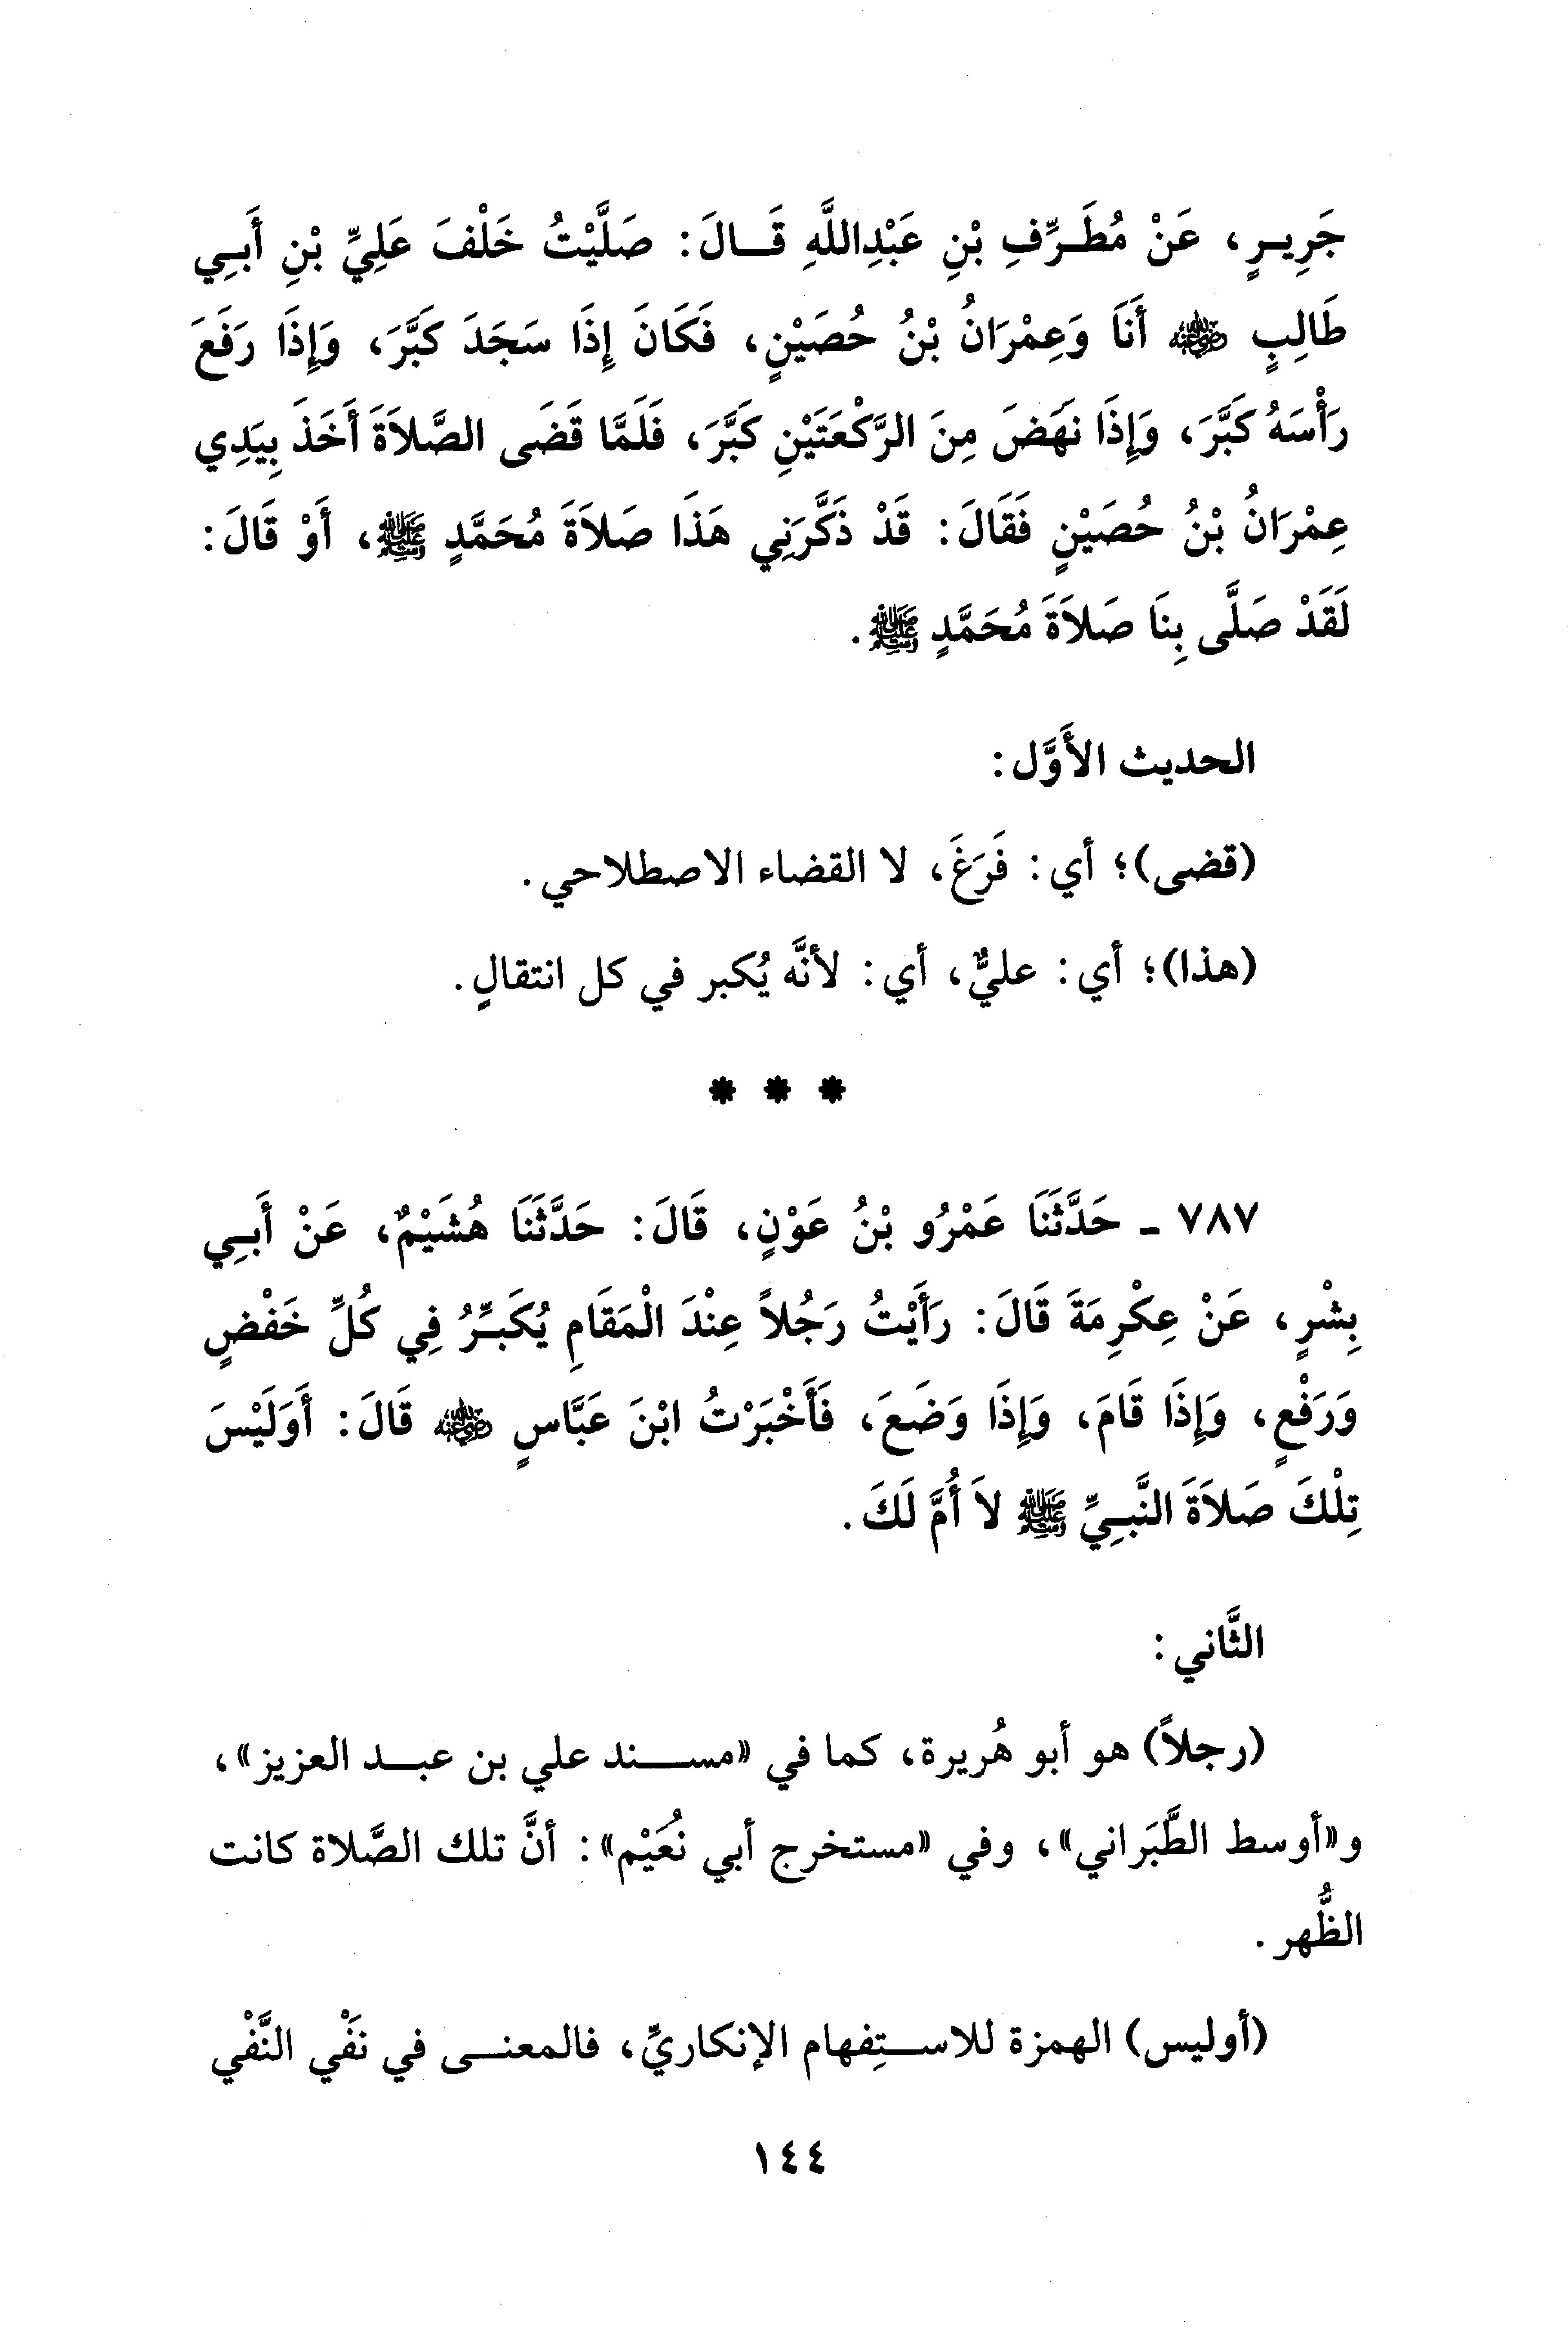 جَرِيرٍ، عَنْ مُطَرِّفِ بْنِ عَبْدِاللَّهِ قَالَ: صَلَّيْتُ خَلْفَ عَلِيِّ بْنِ أَبِي
طَالِبٍ ﵁ أَنَا وَعِمْرَانُ بْنُ حُصَيْنٍ، فَكَانَ إِذَا سَجَدَ كَبَّرَ، وَإِذَا رَفَعَ
رَأْسَهُ كَبَّرَ، وَإِذَا نَهَضَ مِنَ الرَّكْعَتَيْنِ كَبَّرَ، فَلَمَّا قَضَى الصَّلاَةَ أَخَذَ بِيَدِي
عِمْرَانُ بْنُ حُصَيْنٍ فَقَالَ: قَدْ ذَكَّرَنِي هَذَا صَلاَةَ مُحَمَّدٍ ﷺ، أَوْ قَالَ:
لَقَدْ صَلَّى بِنَا صَلاَةَ مُحَمَّدٍ ﷺ.
الحديث الأَوَّل:
(قضى)؛ أي: فَرَغَ، لا القضاء الاصطلاحي.
(هذا)؛ أي: عليٌّ، أي: لأنَّه يُكبر في كل انتقالٍ.
* * *
٧٨٧ - حَدَّثَنَا عَمْرُو بْنُ عَوْنٍ، قَالَ: حَدَّثَنَا هُشَيْمٌ، عَنْ أَبِي
بِشْرٍ، عَنْ عِكْرِمَةَ قَالَ: رَأَيْتُ رَجُلاً عِنْدَ الْمَقَامِ يُكَبِّرُ فِي كُلِّ خَفْضٍ
وَرَفْعٍ، وَإِذَا قَامَ، وَإِذَا وَضَعَ، فَأَخْبَرْتُ ابْنَ عَبَّاسٍ ﵁ قَالَ: أَوَلَيْسَ
تِلْكَ صَلاَةَ النَّبِيِّ ﷺ لاَ أُمَّ لَكَ.
الثَّاني:
(رجلاً) هو أبو هُريرة، كما في «مسند علي بن عبد العزيز»،
و«أوسط الطَّبَراني»، وفي «مستخرج أبي نُعَيْم»: أنَّ تلك الصَّلاة كانت
الظُّهر.
(أوليس) الهمزة للاستِفهام الإنكاريِّ، فالمعنى في نفْي النَّفْي
١٤٤